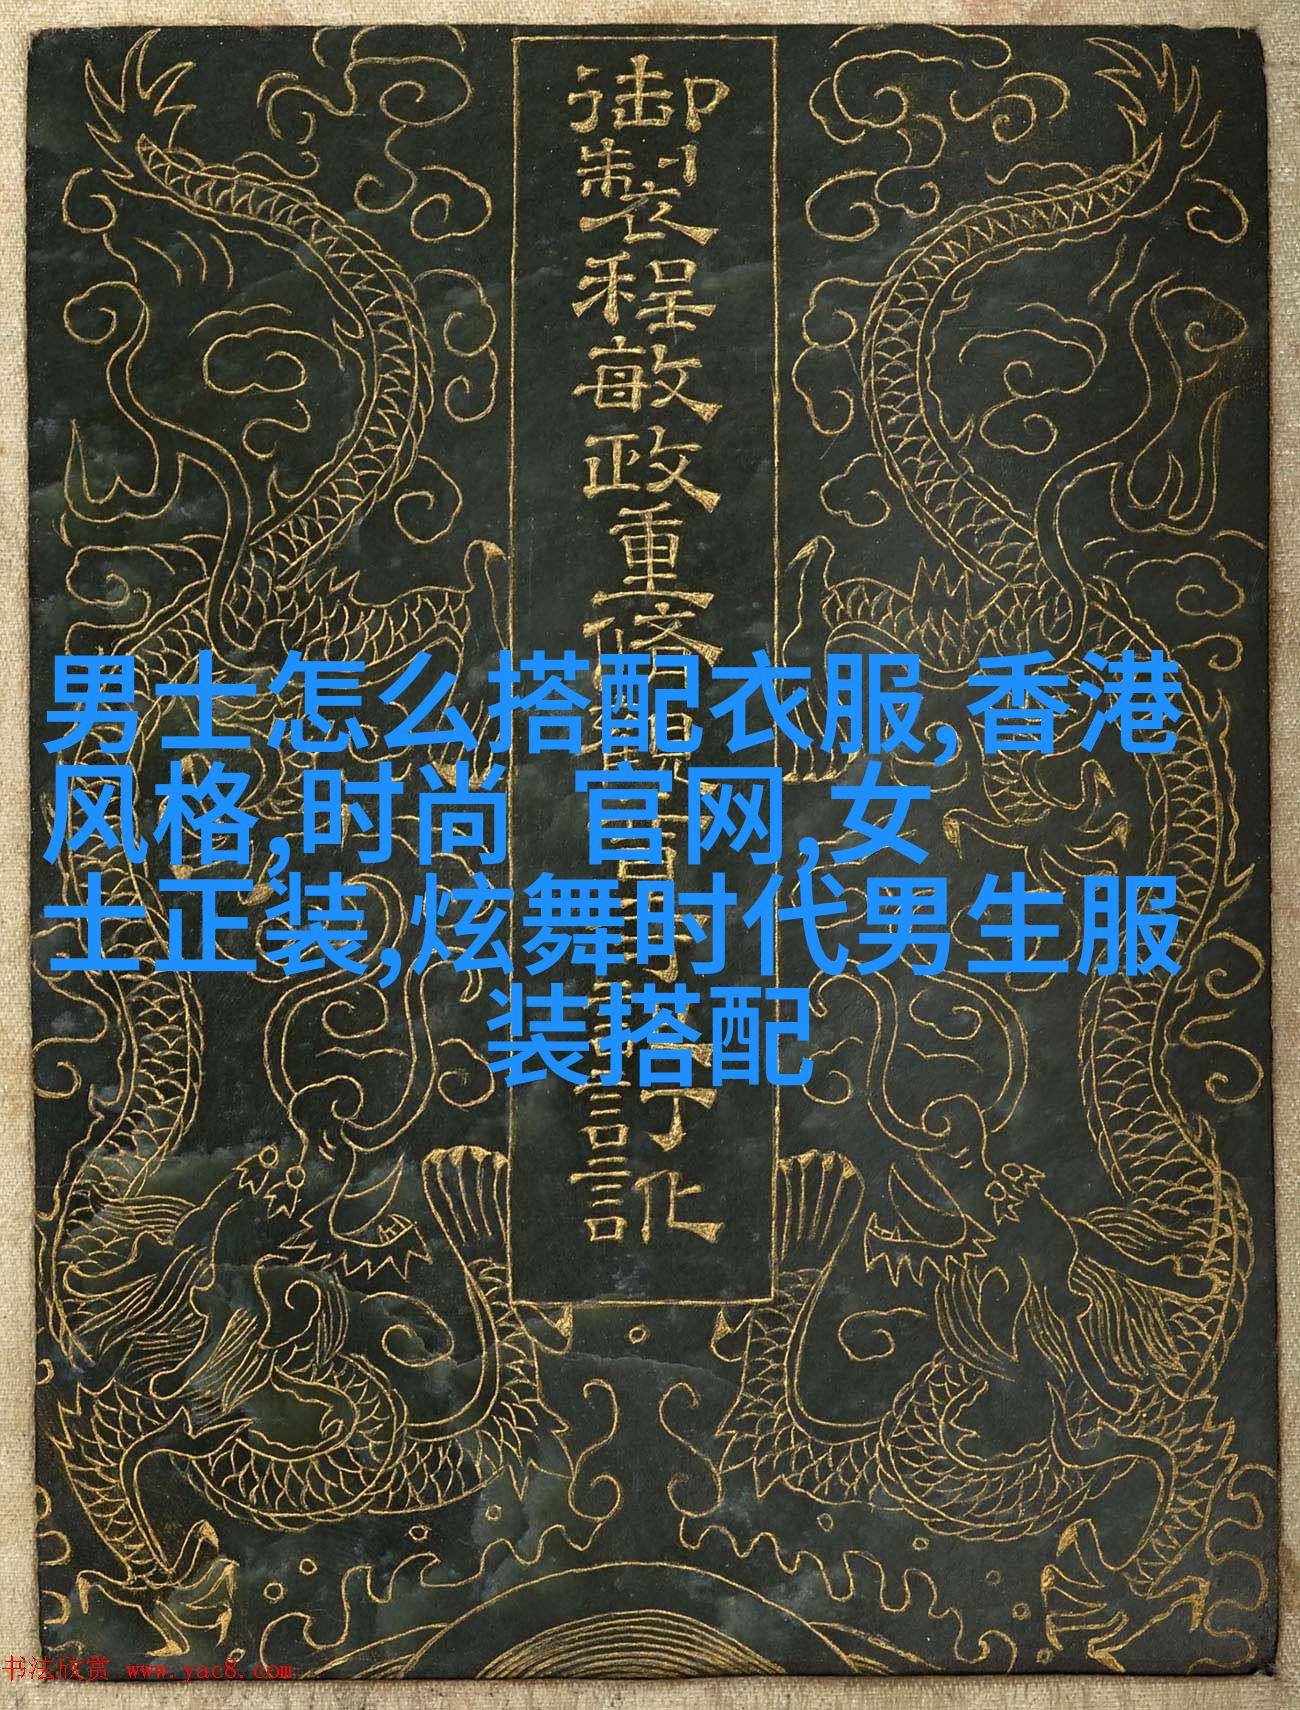 御製程敏政重脩
訂訛
男士怎么搭配衣服,香港
风格,时尚 官网,女
士正装,炫舞时代男生服
装搭配
书法欣赏 www.yac8.com